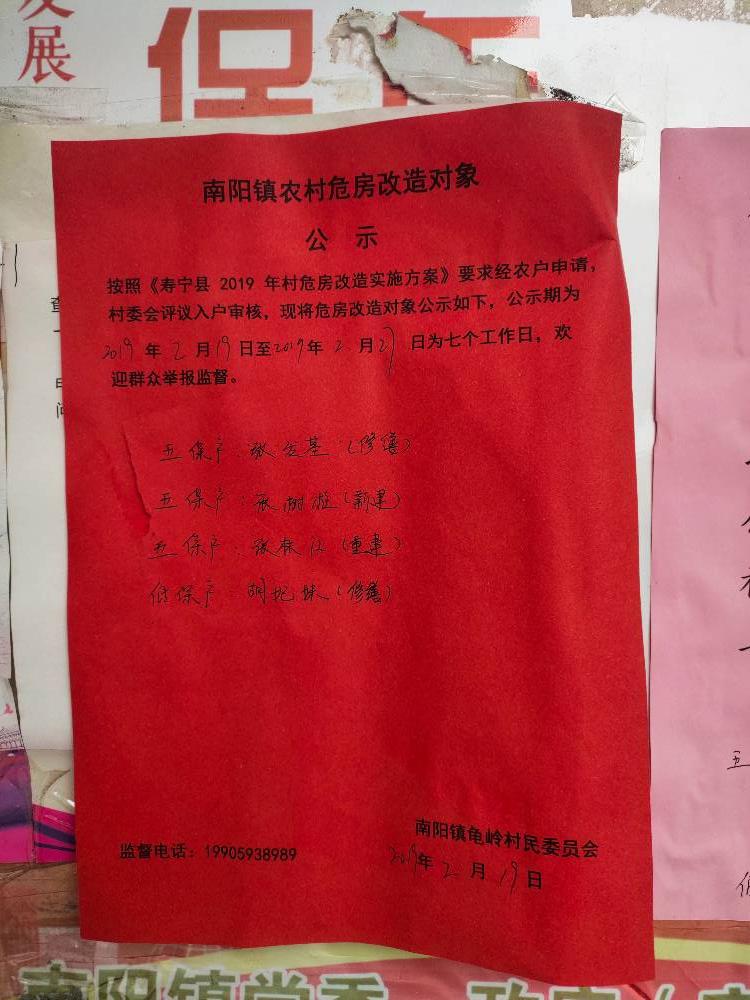 发
展
保
南阳镇农村危房改造对象
公 示
按照《寿宁县 2019 年村危房改造实施方案》要求经农户申请，
村委会评议入户审核，现将危房改造对象公示如下，公示期为
2019 年 2 月 19 日至 2019 年 2 月 27 日为七个工作日，欢
迎群众举报监督。
五保户：张发基（修缮）
五保户：张树（新建）
五保户：张春（重建）
低保户：胡妹（修缮）
南阳镇龟岭村民委员会
监督电话：19905938989
2019年 2 月 19 日
五
南阳镇党委